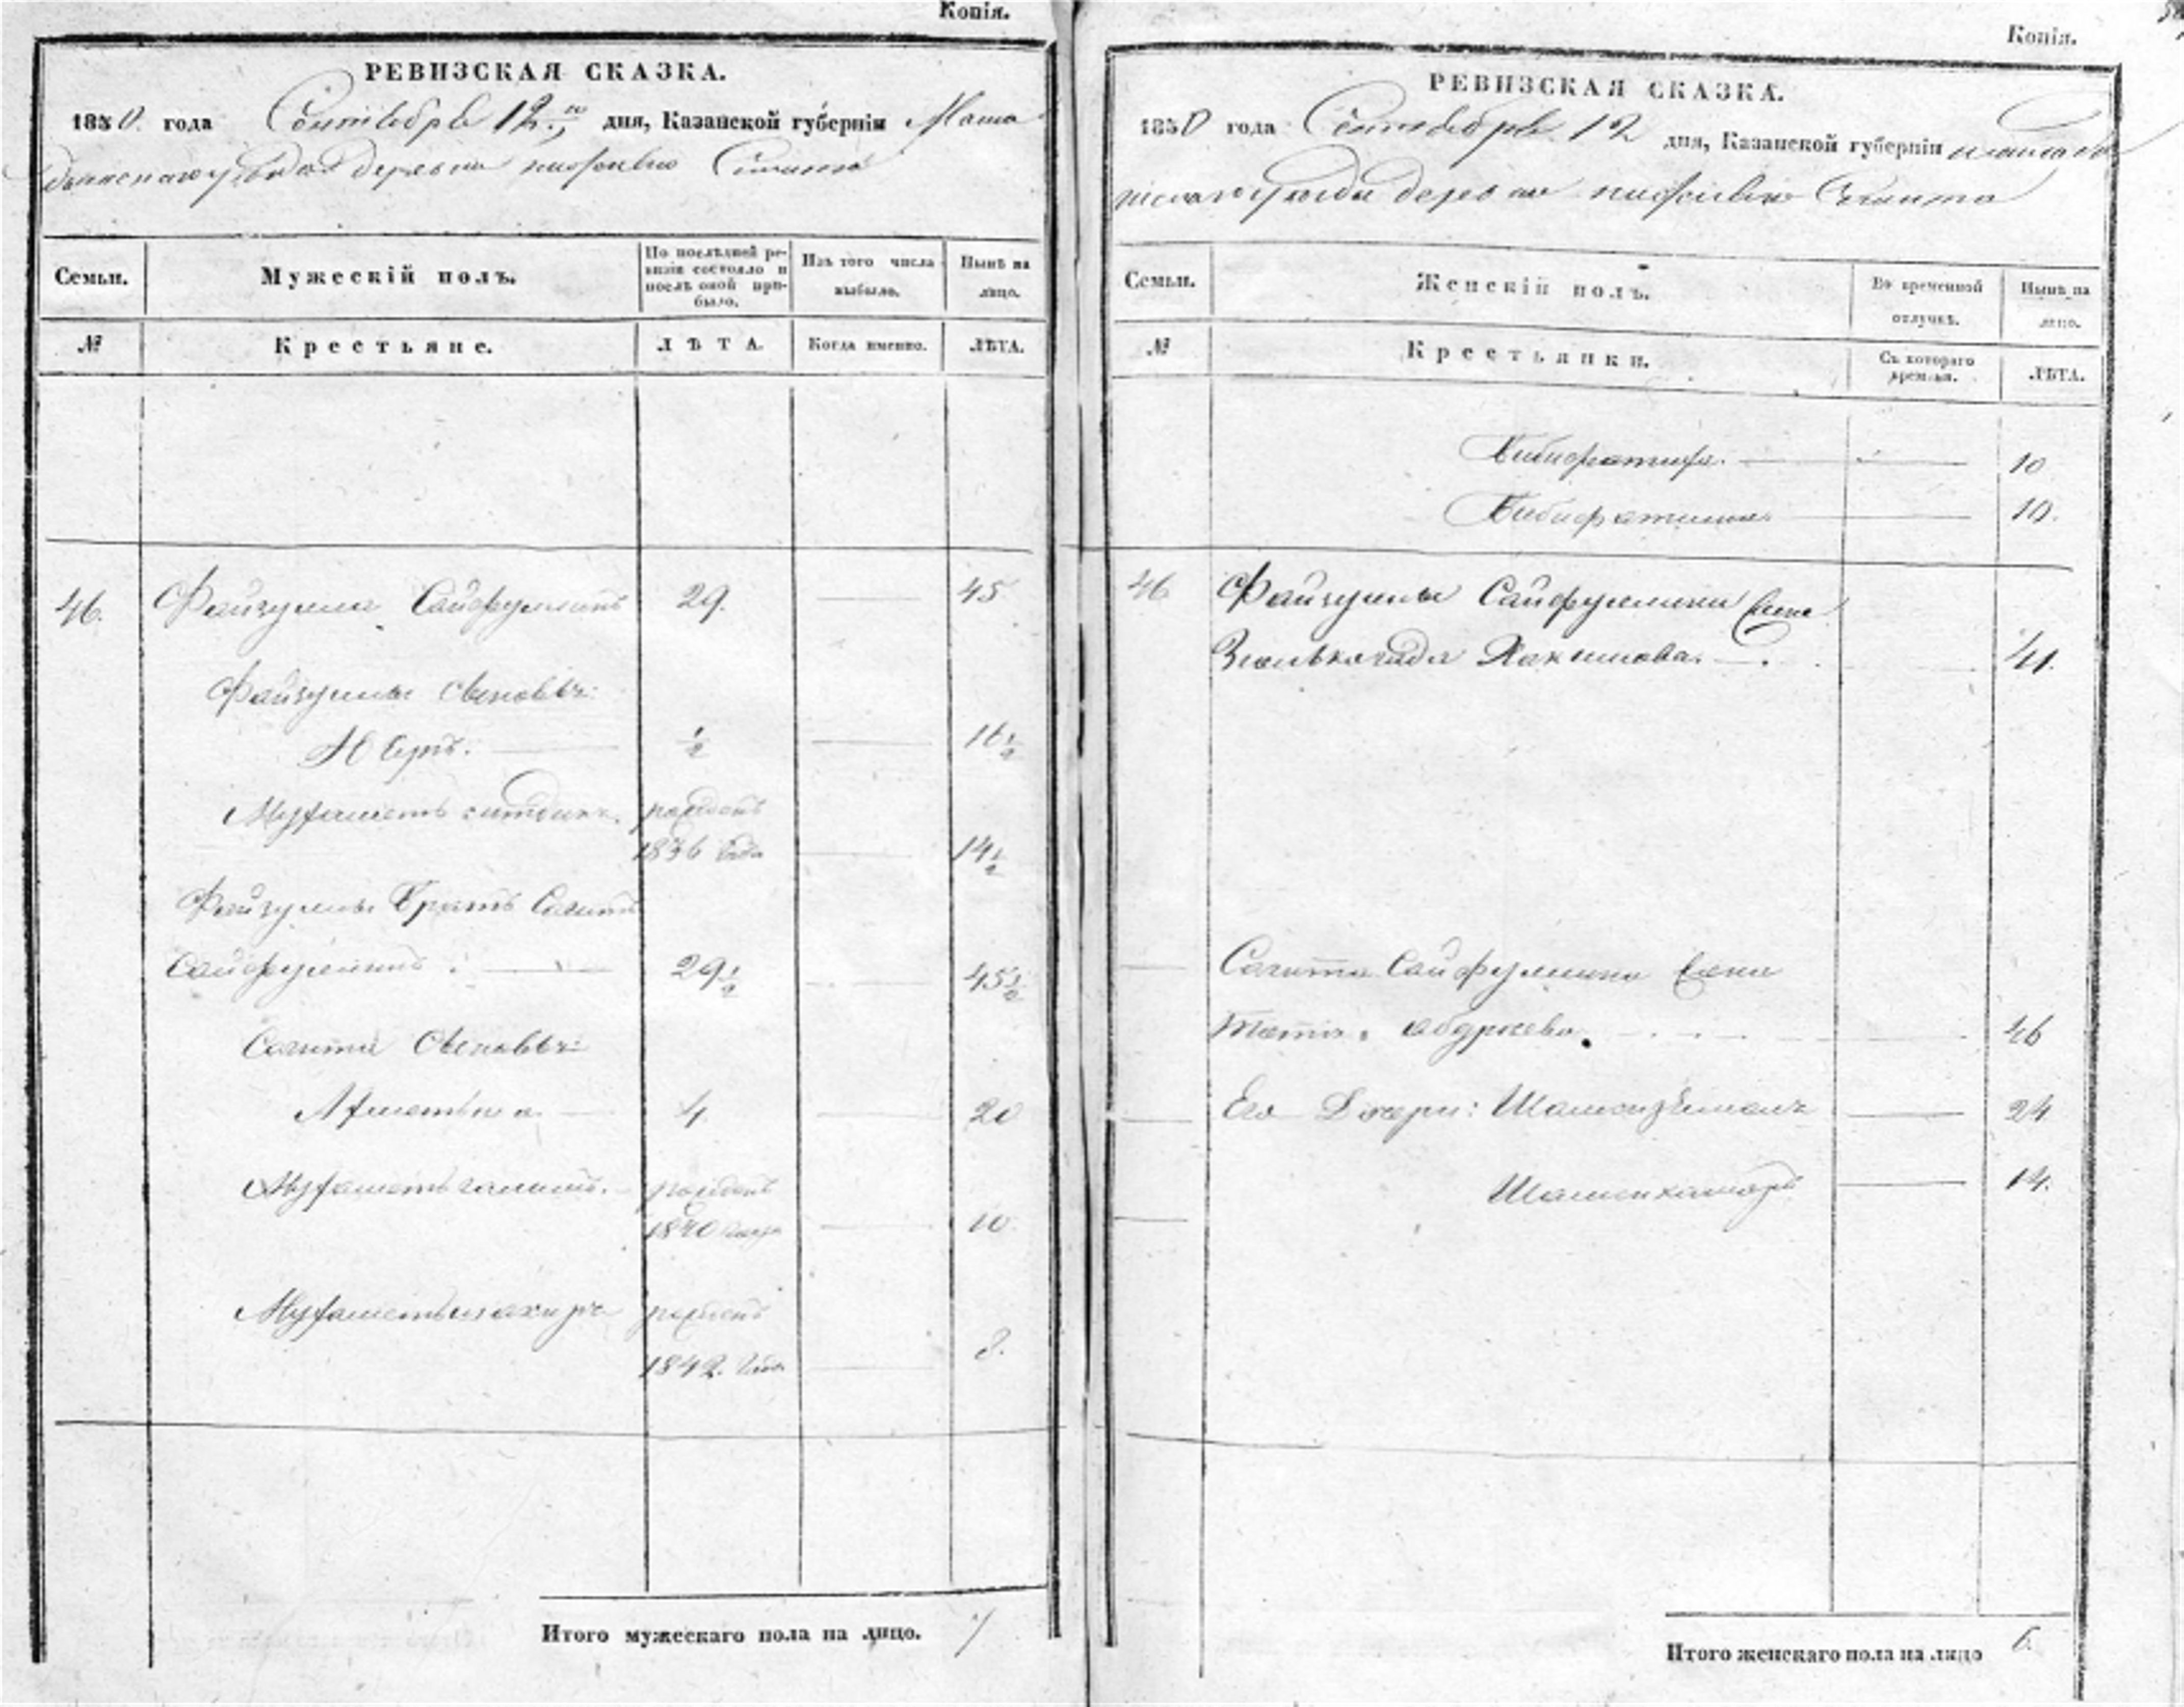 Копія.
РЕВИЗСКАЯ СКАЗКА.
1850. года Сентября 12 дня, Казанской губерніи Мама
дышскаго уѣзда деревни
Семьи.
Мужескій полъ.
По послѣдней ре-
визіи состояло и
послѣ оной при-
было.
Изъ того числа
выбыло.
Нынѣ на
лицо.
№
Крестьяне.
ЛѢТА.
Когда именно.
ЛѢТА.
46. Файзулла Сайфуллинъ 29. 45
Файзуллы сыновья:
½ 16½
рожденъ
1836 года 14½
Файзуллы братъ Сагитъ
Сайфуллинъ. 29½ 45½
Сагита сыновья:
4. 20
рожденъ
1840 года 10.
рожденъ
1842. года 8.
Итого мужескаго пола на лицо. 7
Копія.
РЕВИЗСКАЯ СКАЗКА.
1850 года Сентября 12 дня, Казанской губерніи мамады
шскаго уѣзда деревни
Семьи.
Женскій полъ.
Во временной
отлучкѣ.
Нынѣ на
лицо.
№
Крестьянки.
Съ котораго
времени.
ЛѢТА.
10
Бибифатима 10.
46 Файзуллы Сайфуллина жена
Хакимова. 41.
Сагита Сайфуллина жена
46
Его дочери: 24
14.
Итого женскаго пола на лицо 6.